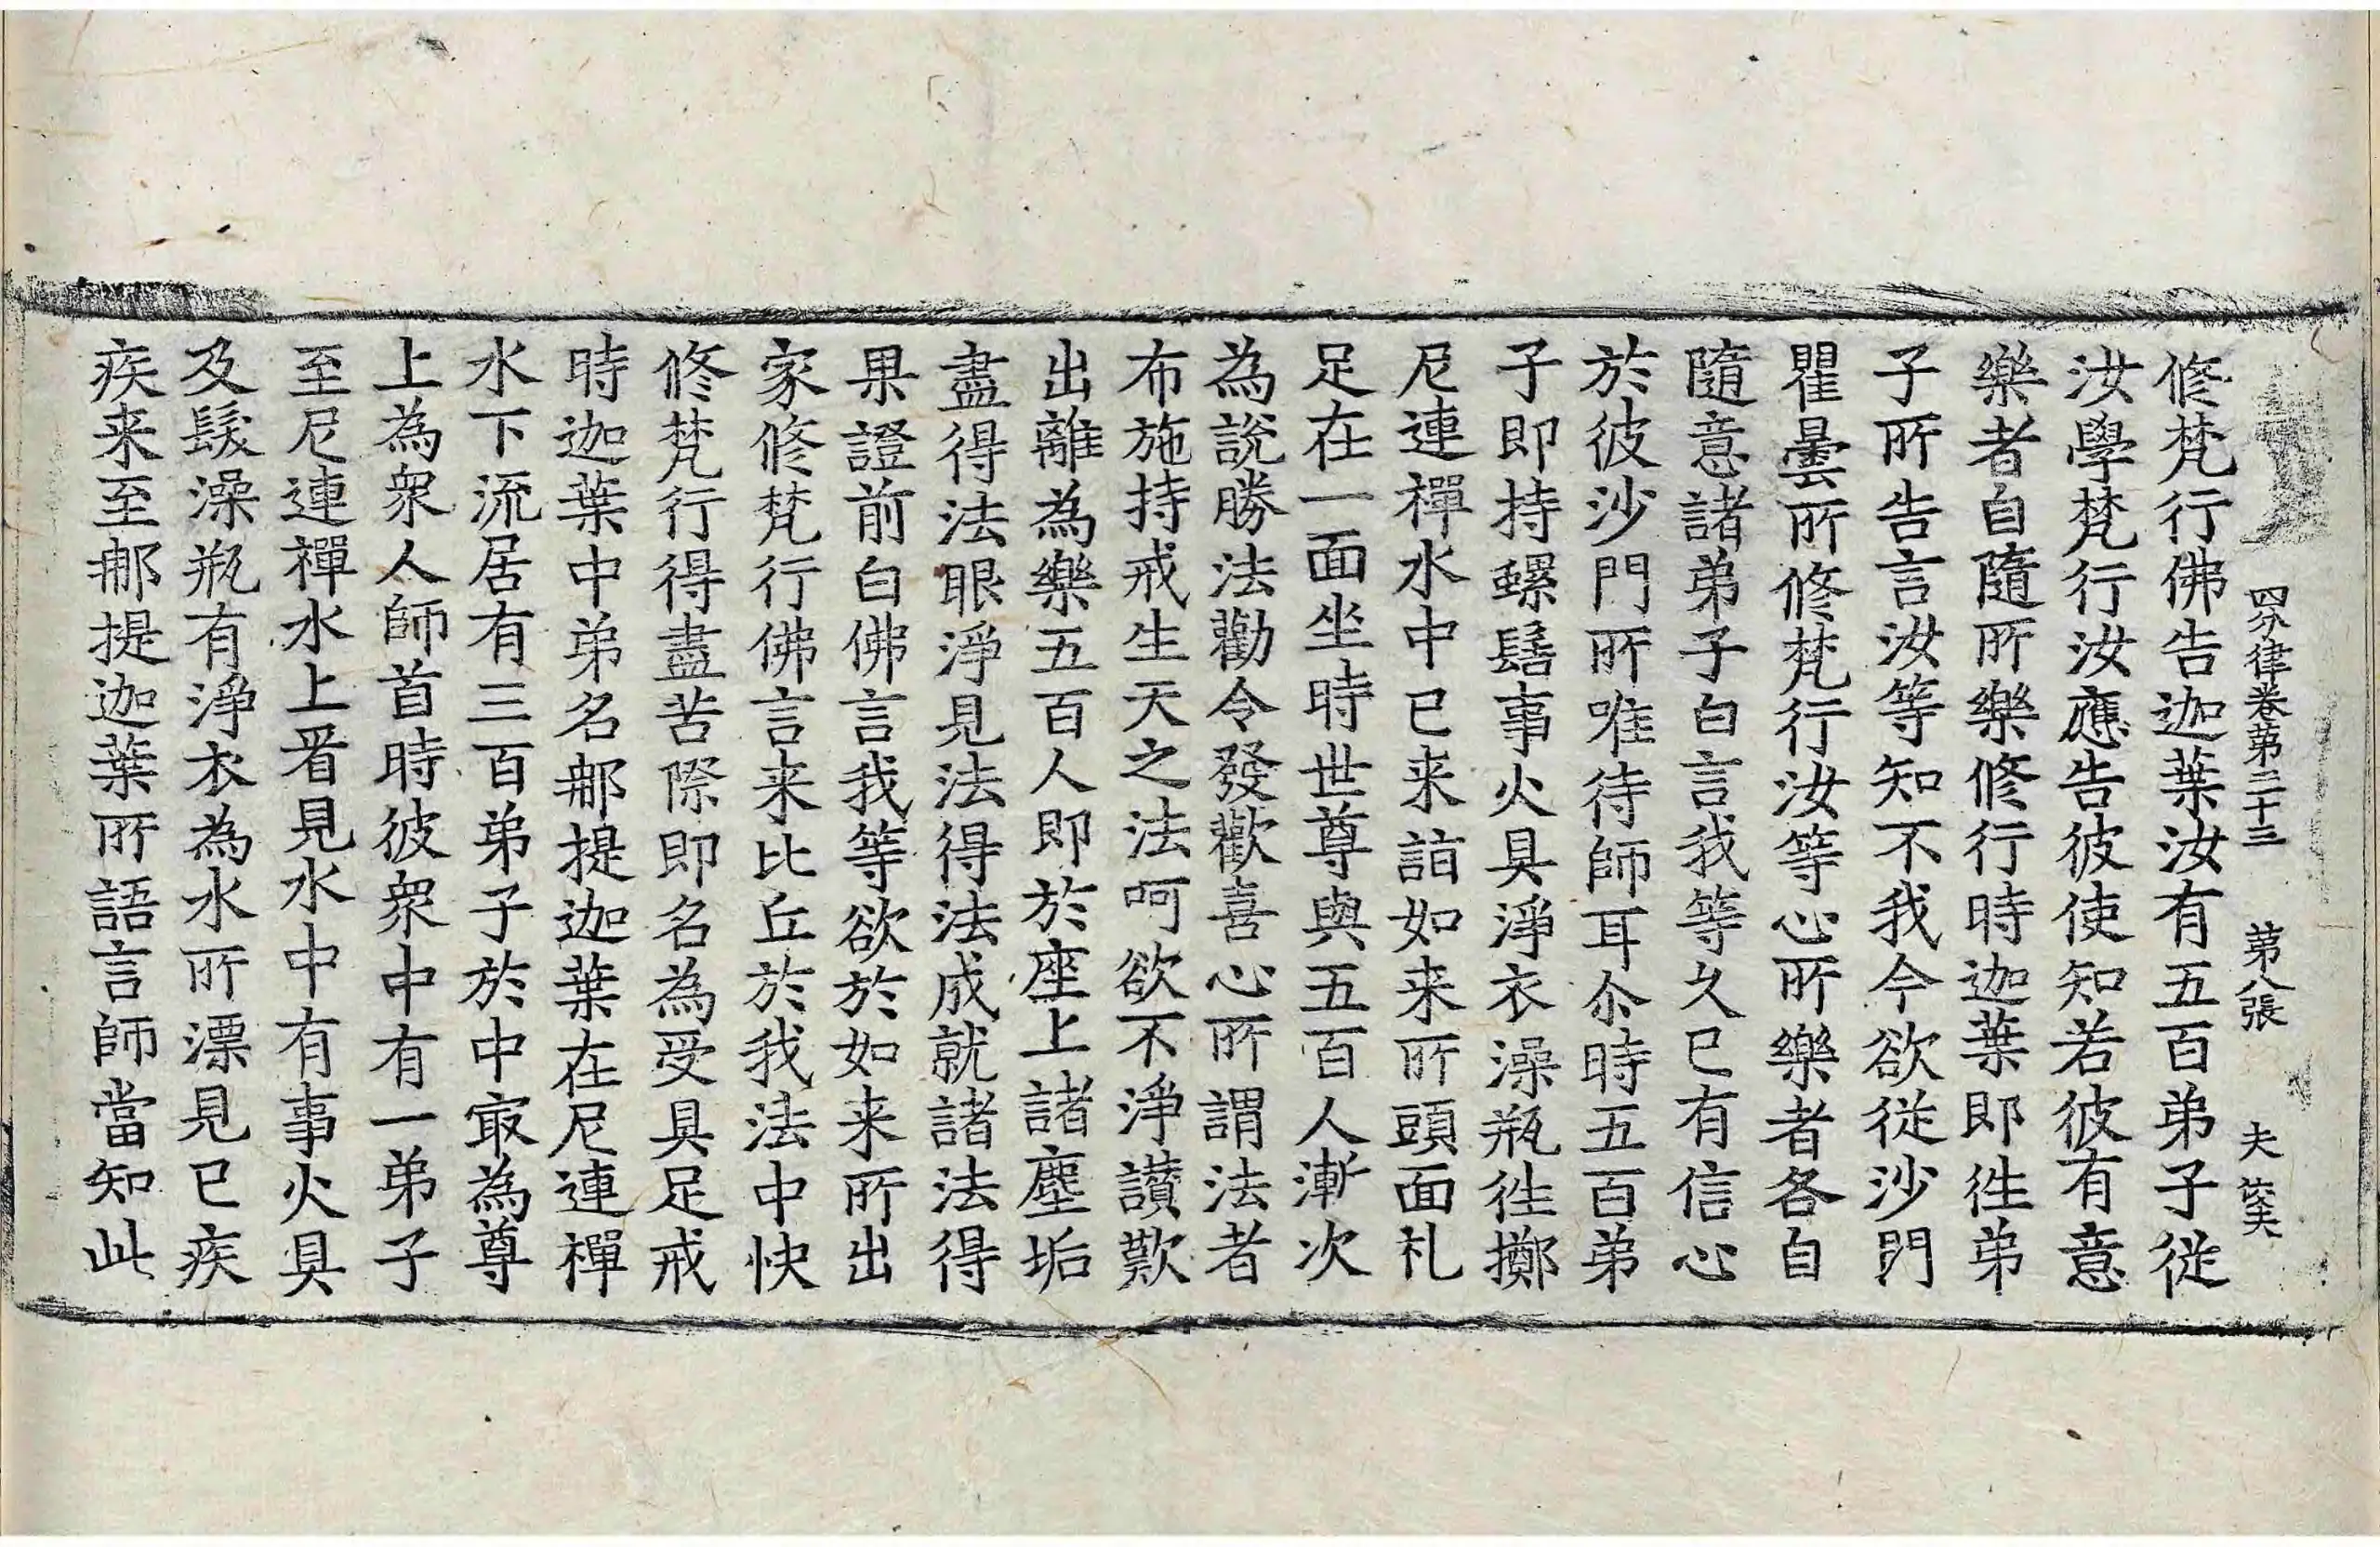 四分律卷第三十三　第八張　夫
修梵行佛告迦葉汝有五百弟子從
汝學梵行汝應告彼使知若彼有意
樂者自隨所樂修行時迦葉即徃弟
子所告言汝等知不我今欲從沙門
瞿曇所修梵行汝等心所樂者各自
隨意諸弟子白言我等久已有信心
於彼沙門所唯待師耳尒時五百弟
子即持螺髻事火具淨衣澡瓶徃擲
尼連禪水中已来詣如来所頭面礼
足在一面坐時世尊與五百人漸次
為說勝法勸令發歡喜心所謂法者
布施持戒生天之法呵欲不淨讃歎
出離為樂五百人即於座上諸塵垢
盡得法眼淨見法得法成就諸法得
果證前白佛言我等欲於如来所出
家修梵行佛言来比丘於我法中快
修梵行得盡苦際即名為受具足戒
時迦葉中弟名𨚗提迦葉在尼連禪
水下流居有三百弟子於中㝡為尊
上為衆人師首時彼衆中有一弟子
至尼連禪水上看見水中有事火具
及髮澡瓶有淨衣為水所漂見已疾
疾来至𨚗提迦葉所語言師當知此